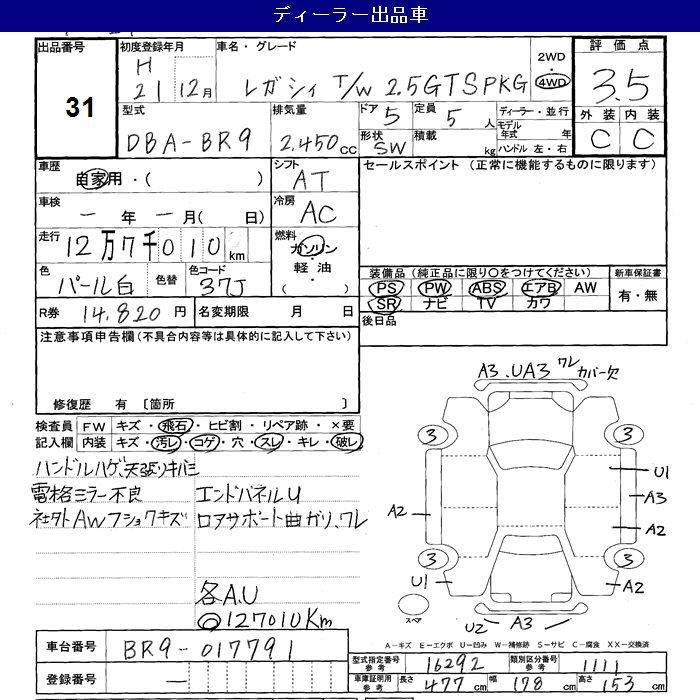 ディーラー出品車
出品番号 31
初度登録年月 H 21 12月
車名・グレード レガシィ T/W 2.5GTSPKG
2WD 4WD
評価点 3.5
外装 内装 C C
型式 DBA-BR9
排気量 2,450cc
ドア 5 定員 5人
ディーラー・並行
形状 SW 積載 kg
モデル年式 年
ハンドル 左・右
車歴 自家用・( )
シフト AT
セールスポイント (正常に機能するものに限ります)
車検 一年 一月(日)
冷房 AC
走行 12万7千010km
燃料 ガソリン・軽油・( )
色 パール白 色替 色コード 37J
装備品 (純正品に限り○をつけてください) 新車保証書
PS PW ABS エアB AW 有・無
SR ナビ TV カワ
R券 14,820円 名変期限 月 日
後日品
注意事項申告欄(不具合内容等は具体的に記入して下さい)
修復歴 有 〔箇所 〕
検査員記入欄 FW キズ・飛石・ヒビ割・リペア跡・×要
内装 キズ・汚レ・コゲ・穴・スレ・キレ・破レ
ハンドルハゲ、天張りキバミ
電格ミラー不良 エンドパネルU
社外AWフショクキズ ロアサポート曲ガリ、ワレ
各A.U
◎127010Km
A3.UA3 ワレ カバー欠
3 3
U1
A3
A2 A2
3 3
U1 A2
スペア U2 A3
A-キズ E-エクボ U-凹み W-補修跡 S-サビ C-腐食 XX-交換済
車台番号 BR9-017791
登録番号 —
型式指定番号参考 16292 類別区分番号参考 1111
車庫証明用参考 長さ 477cm 幅 178cm 高さ 153cm